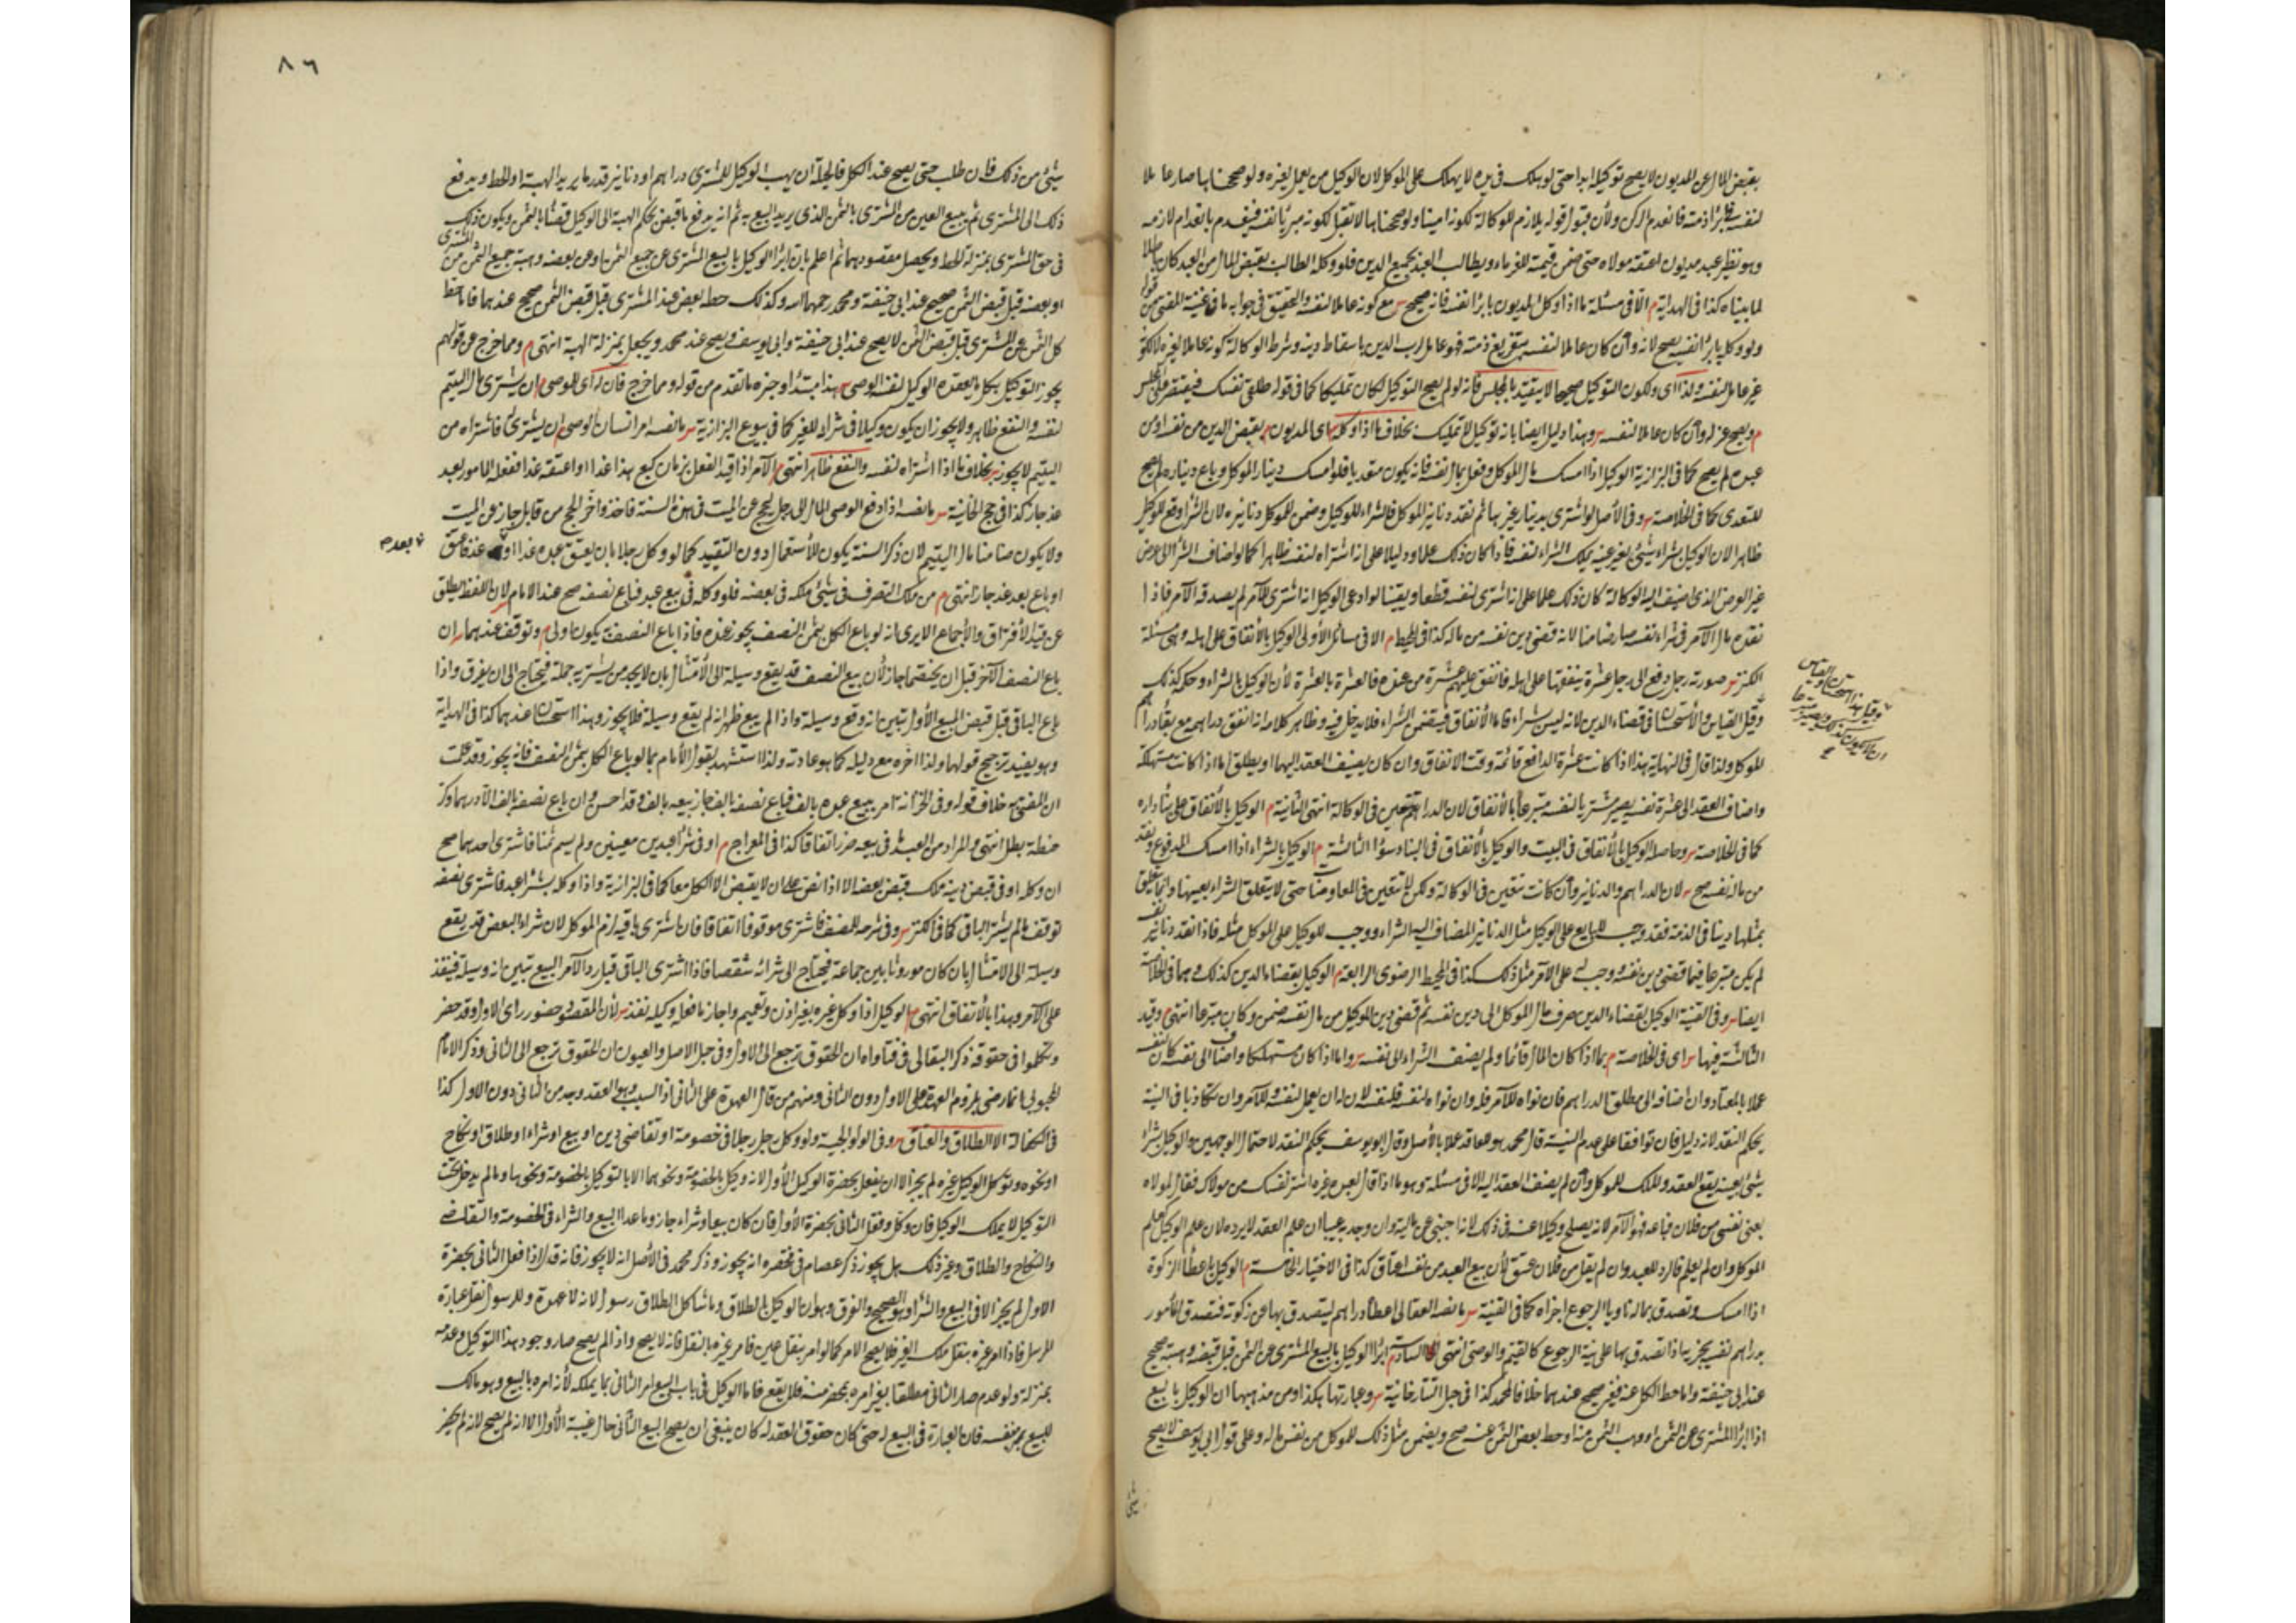 بقبض المال عن المديون لا يصح توكيله ابدا حتى لو هلك في يده لا يهلك على الموكل لان الوكيل من يعمل لغيره ولو صححناها صار عاملا
لنفسه في ابراء ذمته فانعدم الركن ولأن قبول قوله يلازم للوكالة لكونه امينا ولو صححناها لا تقبل لكونه مبرئا نفسه فينعدم بانعدام لازمه
وهو نظير عبد مديون اعتقه مولاه حتى ضمن قيمته للغرماء ويطالب العبد بجميع الدين فلو وكله الطالب بقبض المال من العبد كان باطلا
لما بيناه كذا في الهداية م الا في مسئلة ما اذا وكل المديون بابراء نفسه فانه صحيح س مع كونه عاملا لنفسه والتحقيق في جوابه ما في
ولو وكله بابراء نفسه يصح لانه وأن كان عاملا لنفسه بتفريغ ذمته فهو عامل لرب الدين باسقاط دينه وشرط الوكالة كونه عاملا لغيره لا كونه
غير عامل لنفسه ولذا اى ولكون التوكيل صحيحا لا يتقيد بالمجلس فانه لو لم يصح التوكيل لكان تمليكا كما في قوله طلقي نفسك فيقتصر على المجلس
م ويصح عزله وأن كان عاملا لنفسه س وهذا دليل ايضا بانه توكيل لا تمليك بخلاف ما اذا وكله اى المديون م بقبض الدين من نفسه او من
عبده لم يصح كما في البزازية الوكيل اذا امسك مال الموكل وفعل بمال نفسه فانه يكون متعديا فلو امسك دينار الموكل وباع ديناره لم يصح
للتعدى كما في الخلاصة س وفي الأصل لو اشترى بدينار غيرها ثم نقد دنانير الموكل فالشراء للوكيل وضمن للموكل دنانيره لان الشراء وقع للوكيل
ظاهرا لان الوكيل بشراء شيئ بغير عينه يملك الشراء لنفسه فاذا كان ذلك علما ودليلا على انه اشتراه لنفسه ظاهرا كما لو اضاف الشراء الى عرض
غير العرض الذى اضيف اليه الوكالة كان ذلك علما على انه اشترى لنفسه قطعا ويقينا لو ادعى الوكيل انه اشترى للآمر لم يصدقه الآمر فاذا
نقده مال الآمر في شراء نفسه صار ضامنا لانه قضى دين نفسه من ماله كذا في المحيط م الا في مسائل الأولى الوكيل بالأنفاق على اهله وهي مسئلة
الكنز س صورته رجل دفع الى رجل عشرة ينفقها على اهله فانفق عليهم عشرة من عنده فالعشرة بالعشرة لأن الوكيل بالشراء وحكمه كذلك
وقيل القياس والأستحسان في قضاء الدين لانه ليس بشراء فاما الأنفاق فيتضمن الشراء فلا يدخل فيه وظاهر كلامه انه انفق دراهمه مع بقاء دراهم
للموكل ولذا قال في النهاية هذا اذا كانت عشرة الدافع قائمة وقت الانفاق وان كان يضيف العقد اليها او يطلق اما اذا كانت مستهلكة
واضاف العقد الى عشرة نفسه يصير مشتريا لنفسه متبرعا بالأنفاق لان الدراهم تتعين في الوكالة انتهى الثانية م الوكيل بالأنفاق على بناء داره
كما في الخلاصة س وحاصله الوكيل بالأنفاق في البيت والوكيل بالأنفاق في البناء سؤاء الثالثة م الوكيل بالشراء اذا امسك المدفوع ونقد
من مال نفسه صح س لان الدراهم والدنانير وأن كانت تتعين في الوكالة ولكن لا تتعين في المعاوضات حتى لا يتعلق الشراء بعينها وانما يتعلق
بمثلها دينا في الذمة فقد وجب للبايع على الوكيل مثل الدنانير المضاف اليه الشراء ووجب للوكيل على الموكل مثله فاذا نقد دنانير نفسه
لم يكن متبرعا فيما قضى دين نفسه وجب له على الآمر مثل ذلك كذا في المحيط الرضوى الرابعة م الوكيل بقضاء الدين كذلك وهما في الخلاصة
ايضا س وفي القنية الوكيل بقضاء الدين صرف مال الموكل الى دين نفسه ثم قضى دين الموكل من مال نفسه ضمن وكان متبرعا انتهى م وقيد
الثالثة فيها س اى في الخلاصة م بما اذا كان المال قائما ولم يضف الشراء الى نفسه س واما اذا كان مستهلكا واضاف الى نفسه كان لنفسه
عملا بالمعتاد وان اضافه الى مطلق الدراهم فان نواه للآمر فله وان نواه لنفسه فلنفسه لان له ان يعمل لنفسه وللآمر وان تكاذبا في النية
يحكم النقد لانه دليل فان توافقا على عدم النية قال محمد هو للعاقد عملا بالأصل وقال ابو يوسف يحكم النقد لاحتمال الوجهين والوكيل بشراء
شيئ بعينه يقع العقد والملك للموكل وأن لم يضف العقد اليه الا في مسئلة وهو ما اذا قال لعبد غيره اشتر نفسك من مولاك فقال لمولاه
بعنى نفسي من فلان فباعه فهو الآمر لانه يصلح وكيلا عنه في ذلك لانه اجنبي عن ماليته وان وجد به عيبا ان علم العقد لا يرده لان علم الوكيل كعلم
الموكل وان لم يعلم فالرد للعبد وان لم يقل من فلان عتق لأن بيع العبد من نفسه اعتاق كذا في الاختيار الخامسة م الوكيل باعطاء الزكوة
اذا امسك وتصدق بماله ناويا الرجوع اجزاه كما في القنية س ما نصه العقالى اعطاه دراهم ليتصدق بها عن زكوته فتصدق المأمور
بدراهم نفسه يجزيه اذا تصدق بها على نية الرجوع كالقيم والوصي انتهى السادسة م ابراء الوكيل بالبيع المشترى عن الثمن قبل قبضه وهبته صحيح
عند ابي حنيفة واما حط الكل عنه فغير صحيح عندهما خلافا لمحمد كذا في حيل التتارخانية س وعبارتها هكذا ومن مذهبهما ان الوكيل بالبيع
اذا ابراء المشترى عن الثمن او وهب الثمن منه او حط بعض الثمن عنه صح ويضمن مثل ذلك للموكل من نفس ماله وعلى قول ابي يوسف لا يصح
شيئ
وقيل هذا استحسان والقياس
ان لا يكون كذلك ويصير متبرعا
٨٦
شيئ من ذلك فان طلب حتى يصح عند الكل فالحيلة ان يهب الوكيل للمشترى دراهم او دنانير قدر ما يريد الهبة او الحط ويدفع
ذلك الى المشترى ثم يبيع العين من المشترى بالثمن الذى يريد البيع به ثم انه يدفع ما قبض بحكم الهبة الى الوكيل قضاء بالثمن ويكون ذلك
في حق المشترى بمنزلة الحط ويحصل مقصودهما ثم اعلم بان ابراء الوكيل بالبيع المشترى عن جميع الثمن او عن بعضه وهبة جميع الثمن من المشترى
او بعضه قبل قبض الثمن صحيح عند ابي حنيفة ومحمد رحمهما الله وكذلك حط بعض عند المشترى قبل قبض الثمن صحيح عندهما فاما حط
كل الثمن عن المشترى قبل قبض الثمن لا يصح عند ابي حنيفة وابي يوسف ويصح عند محمد ويجعل بمنزلة الهبة انتهى م ومما خرج عن قولهم
يجوز التوكيل بكل ما يعقده الوكيل لنفسه الوصي س هذا مبتدأ وخبره ما تقدم من قوله ومما خرج فان له اى للوصي م ان يشترى مال اليتيم
لنفسه والنفع ظاهر ولا يجوز ان يكون وكيلا في شرائه للغير كما في بيوع البزازية س ما نصه امر انسان الوصي ان يشترى له فاشتراه من
اليتيم لا يجوز بخلاف ما اذا اشتراه لنفسه والنفع ظاهر انتهى م الآمر اذا قيد الفعل بزمان كبع هذا غدا او اعتقه غدا ففعله المأمور بعد
غد جاز كذا في حج الخانية س ما نصه اذا دفع الوصي المال الى رجل ليحج عن الميت في هذه السنة فاخذه واخر الحج من قابل جاز عن الميت
ولا يكون ضامنا مال اليتيم لان ذكر السنة يكون للأستعجال دون التقييد كما لو وكل رجلا بان يعتق عبده غدا او غد فاعتق
بعد
او باع بعد غد جاز انتهى م من ملك التصرف في شيئ ملكه في بعضه فلو وكله في بيع عبد فباع نصفه صح عند الامام س لان اللفظ يطلق
عن قيد الأفتراق والأجماع الا يرى انه لو باع الكل بثمن النصف يجوز عنده فاذا باع النصف به يكون اولى م وتوقف عندهما س ان
باع النصف الآخر قبل ان يختصما جاز لأن بيع النصف قد يقع وسيلة الى الأمتثال بان لا يجد من يشتريه جملة فيحتاج الى ان يفرق واذا
باع الباقي قبل قبض المبيع الأول تبين انه وقع وسيلة واذا لم يبع ظهر انه لم يقع وسيلة فلا يجوز وهذا استحسان عندهما كذا في الهداية
وهو يفيد ترجيح قولهما ولذا اخره مع دليله كما هو عادته ولذا استشهد بقول الأمام بما لو باع الكل بثمن النصف فانه يجوز وقد علمت
ان المفتى به خلاف قوله وفي الخزانة امر ببيع عبده بالف فباع نصفه بالف جاز بيعه بالف وقد احسن وان باع نصفه بالف الا درهما وكر
حنطة بطل انتهى والمراد من العبد ما في بيعه ضرر اتفاقا كذا في المعراج م او في شراء عبدين معينين ولم يسم ثمنا فاشترى احدهما صح
ان وكله او في قبض دينه ملك قبض بعضه الا اذا نص على ان لا يقبض الا الكل معا كما في البزازية واذا وكله بشراء عبد فاشترى نصفه
توقف ما لم يشتر الباقي كما في الكنز س وفي شرحه للمصنف فاشترى موقوفا اتفاقا فان اشترى باقيه لزم الموكل لان شراء البعض قد يقع
وسيلة الى الامتثال بان كان موروثا بين جماعة فيحتاج الى شرائه شقصا فاذا اشترى الباقي قبل رد الآمر البيع تبين انه وسيلة فينفذ
على الآمر وهذا بالأتفاق انتهى م الوكيل اذا وكل غيره بغير اذن وتعميم واجاز ما فعله وكيله نفذ س لأن المقصود حضور راى الاول وقد حضر
وتكلموا في حقوقه ذكر البقالى في فتاواه ان الحقوق ترجع الى الاول وفي حيل الاصل والعيون ان الحقوق ترجع الى الثاني وذكر الامام
المحبوبى انما رضى بلزوم العهدة على الاول دون الثاني ومنهم من قال العهدة على الثاني اذ السبب وهو العقد وجد من الثاني دون الاول كذا
في الكفالة الا الطلاق والعتاق س وفي الولوالجية ولو وكل رجل رجلا في خصومة او تقاضى دين او بيع او شراء او طلاق او نكاح
او نحوه وتوكل الوكيل غيره لم يجز الا ان يفعل بحضرة الوكيل الأول لانه وكيل بالخصومة ونحوهما الا بالتوكيل بالخصومة ونحوها وما لم يدخل تحت
التوكيل لا يملك الوكيل فان وكل وفعل الثاني بحضرة الأول فان كان بيعا وشراء جاز وما عدا البيع والشراء في الخصومة والتقاضى
والنكاح والطلاق وغير ذلك هل يجوز ذكر عصام في مختصره انه يجوز وذكر محمد في الأصل انه لا يجوز فانه قال اذا فعل الثاني بحضرة
الاول لم يجز الا في البيع والشراء وهو الصحيح والفرق وهو ان الوكيل بالطلاق وما شاكل الطلاق رسول لانه لا عهدة وللرسول نقل عبارة
المرسل فاذا امر غيره بنقل ملك الغير فلا يصح الامر كما لو امر بنقل عين فامر غيره بالنقل فانه لا يصح واذا لم يصح صار وجود هذا التوكيل وعدمه
بمنزلة ولو عدم صار الثاني مطلقا بغير امره بحضرته فلا يقع فاما الوكيل في باب البيع امر الثاني بما يملكه لأنه امره بالبيع وهو مالك
للبيع بنفسه فان العبارة في البيع له حتى كان حقوق العقد له كان ينبغى ان يصح البيع الثاني حال غيبة الأول الا انه لم يصح لانه لم يحضر